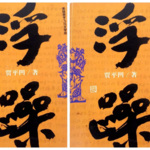 浮
贾平凹/著
躁
浮
贾平凹/著
躁